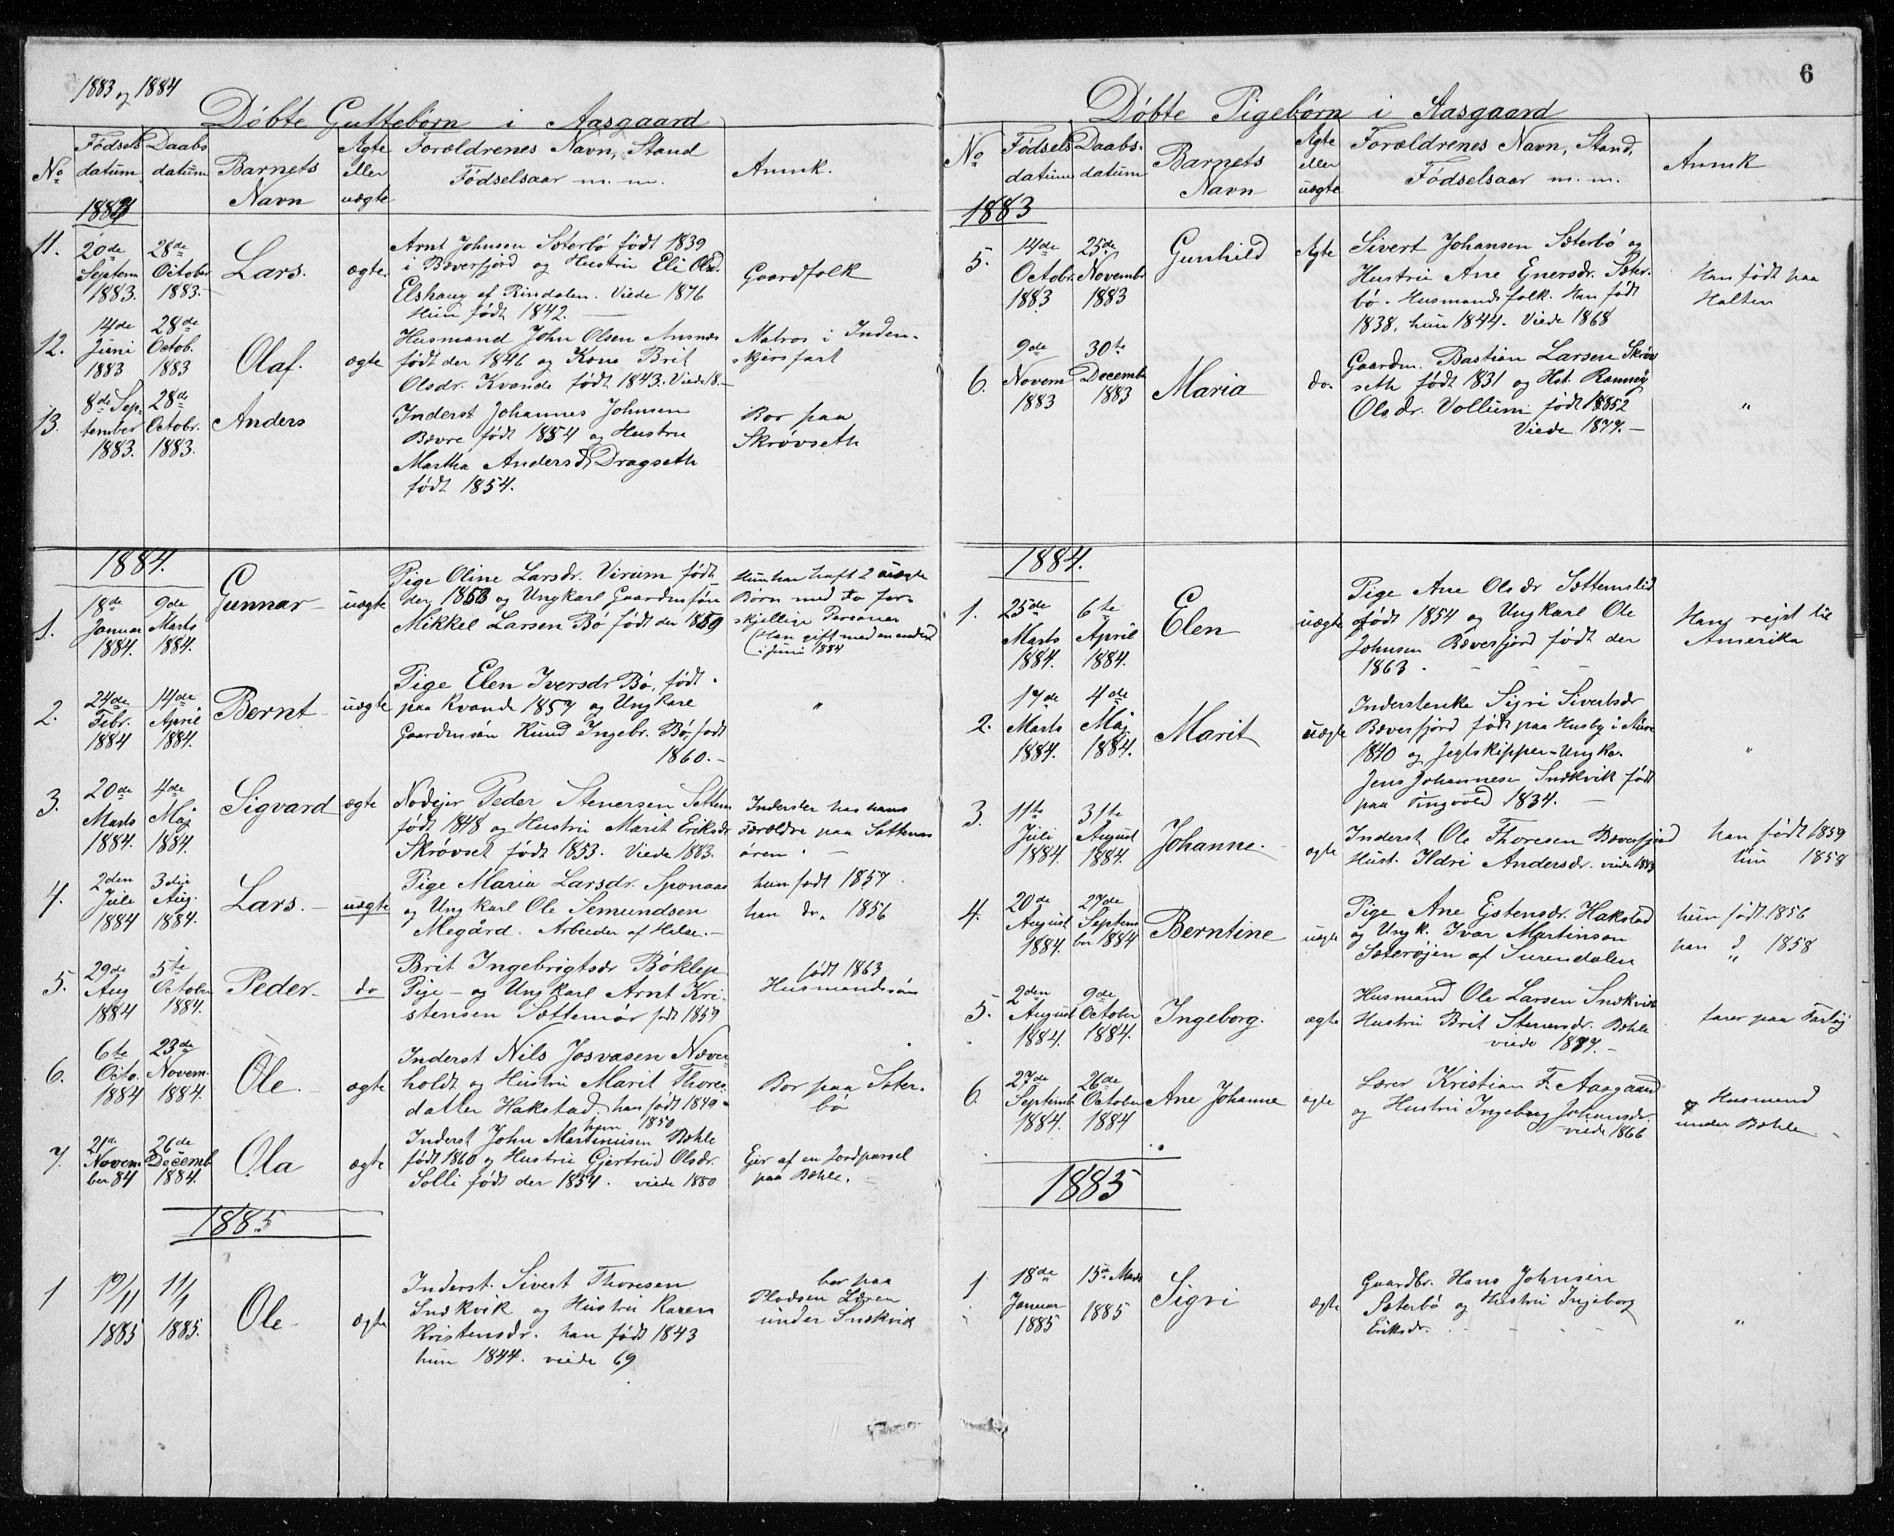 1883 og 1884
Døbte Guttebørn i Aasgaard
No
Fødsels datum
Daabs datum
Barnets Navn
Ægte eller uægte
Forældrenes Navn, Stand
Fødselsaar m. m.
Anmk.
1883
11.
20de Septem 1883.
28de October 1883.
Lars.
ægte
Arnt Johnsen Sæterbø født 1839
i Bæverfjord og Hustru Eli Olsd.
Elshaug af Rindalen. Viede 1876
Hun født 1842.
Gaardfolk
12.
14de Juni 1883
28de Octob. 1883
Olaf.
ægte
Husmand John Olsen Ansnæs
født der 1846 og Kone Brit
Olsdr. Kvande født 1843. Viede 18.—
Matros i Inden-
skjærs fart
13.
8de Sep-
tember 1883.
28de Octobr. 1883.
Anders
Inderst Johannes Johnsen
Bævre født 1854 og Hustru
Martha Andersd. Dragseth
født 1854.
Bor paa
Skrøvseth
1884.
1.
18de Januar 1884.
9de Marts 1884.
Gunnar
uægte
Pige Oline Larsdr. Virum født
der 1853 og Ungkarl Gaardmsøn
Mikkel Larsen Bø født der 1859
Hun har havt 2 uægte
Børn med to for-
skjellige Personer
Han gift med en anden
i Juni 1884
2.
24de Febr. 1884
14de April 1884.
Bernt
uægte
Pige Elen Iversdr Bø, født
paa Kvande 1857 og Ungkarl
Gaardmsøn Knud Ingebr. Bø, født
1860.—
"
3.
20de Marts 1884.
4de Maj 1884.
Sigvard
ægte
Nodejer Peder Stenersen Settem
født 1848 og Hustru Marit Eriksdr
Skrøvset født 1853. Viede 1883.
Inderster hos hans
Forældre paa Settem-
øren.
4.
2den Juli 1884
3die Aug. 1884.
Lars.
uægte
Pige Maria Larsdr. Sponaas
og Ungkarl Ole Semundsen
Megård. Arbeider af Helse.—
hun født 1857
han do. 1856
5.
29de Aug 1884
5te October 1884.
Peder
do
Brit Ingebrigtsdr Bøklep
Pige — og Ungkarl Arnt Kri-
stensen Sættemør født 1859
født 1863
Husmandssøn
6.
6te Octo. 1884
23de Novem. 1884.
Ole.
ægte
Inderst Nils Josvasen Næver-
holdt og Hustru Marit Thores-
datter Hakstad. han født 1849
hun 1850
Bor paa Sæter-
bø
7.
21de Novem-
ber 84
26de Decemb 1884.
Ola
ægte
Inderst John Martinusen Bøhle
født 1860 og Hustru Gjertrud Olsdr.
Solli født der 1854. viede 1880
Ejer af en Jordparsel
paa Bøhle.
1885
1
19/11 1885
11/1 1885.
Ole
ægte
Inderst. Sivert Thoresen
Snekvik og Hustru Karen
Kristensdr. han født 1843
hun 1844. viede 69
bor paa
Pladsen Løren
under Snekvik
6
Døbte Pigebørn i Aasgaard
No
Fødsels datum
Daabs- datum
Barnets Navn
Ægte eller uægte
Forældrenes Navn, Stand,
Fødselsaar m. m.
Anmk
1883
5.
14de Octobr. 1883
25de Novembr 1883
Gunhild
Ægte
Sivert Johansen Sæterbø og
Hustru Ane Enersdr. Sæter-
bø. Husmandsfolk. Han født
1838, hun 1844. Viede 1868
Han født paa
Halten
6.
9de Novem 1883
30te Decembr 1883
Maria
do.
Gaardm. Bastian Larsen Skrøv-
seth født 1831 og Hst. Rannøy
Olsdr. Vollum født 1852
Viede 1879.—
"
1884.
1.
25de Marts 1884.
6te April 1884.
Elen
uægte
Pige Ane Olsdr Sættemslid
født 1854 og Ungkarl Ole
Johnsen Bæverfjord født der
1863.
Han rejst til
Amerika
2.
17de Marts 1884.
4de Maj 1884.
Marit
uægte
Inderstenke Sigri Sivertsdr
Bæverfjord født paa Husby i Aure
1840 og Jegtskipper-Ungka.
Jens Johannesen Snekvik født
paa Tingvold 1834.
"
3.
11te Juli 1884.
31te August 1884.
Johanne.
ægte
Inderst Ole Thoresen Bæverfjord
Hust. Ildri Andersdr. viede 1883
han født 1859
hun 1858
4.
20de August 1884.
27de Septem
ber 1884
Berntine
uægte
Pige Ane Estensdr. Hakstad
og Ungk. Ivar Martinsen
Sæterøjen af Surendalen
hun født 1856
han " 1858
5.
2den August 1884.
9de October 1884.
Ingeborg.
ægte
Husmand Ole Larsen Snekvik
Hustru Brit Stenersdr. Bøhle
viede 1877.—
farer paa Fartøj
6.
27de Septemb 1884.
26de October 1884
Ane Johanne
ægte
Lærer Kristian F. Aasgaard
og Hustru Ingeborg Johansdr.
viede 1866
og Husmand
under Bøhle
1885
1
18de Januar 1885
15de Marts 1885
Sigri
ægte
Gaardbr. Hans Johnsen
Sæterbø og Hustru Ingeborg
Eriksdr.
"